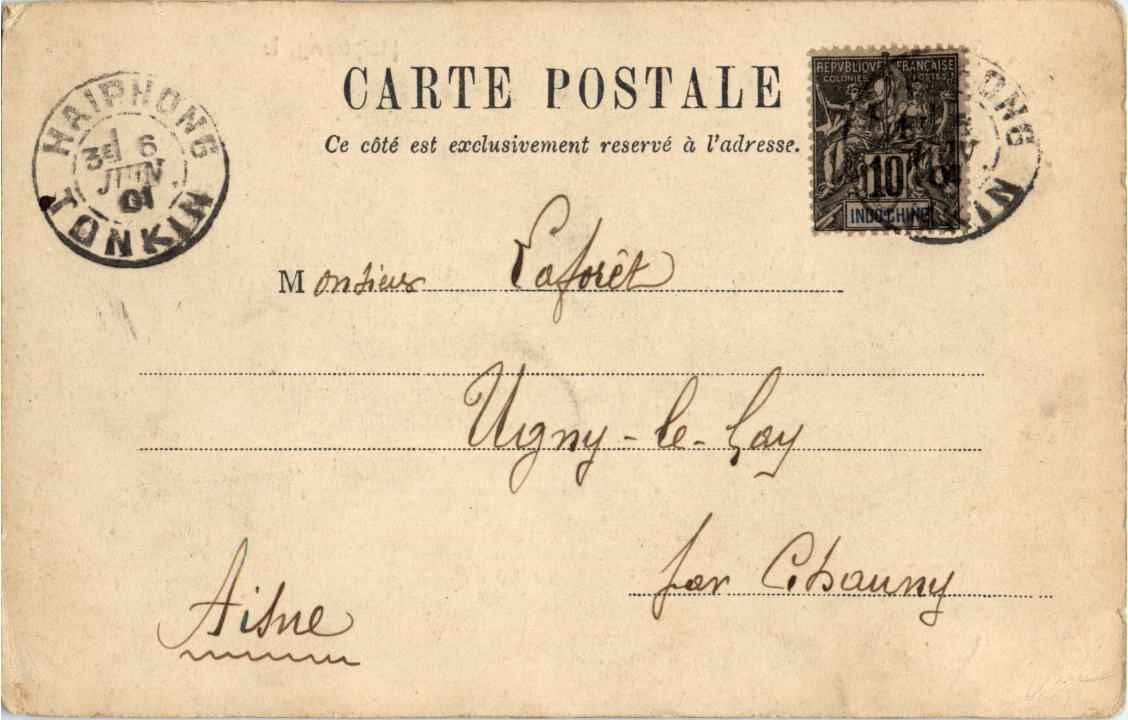 CARTE POSTALE
Ce côté est exclusivement reservé à l'adresse.
HAIPHONG
3E 6
JUIN
01
TONKIN
REPVBLIQVE FRANÇAISE
COLONIES POSTES
10
INDO-CHINE
ONG
KIN
Monsieur Laforêt
Ugny-le-Gay
par Chauny
Aisne